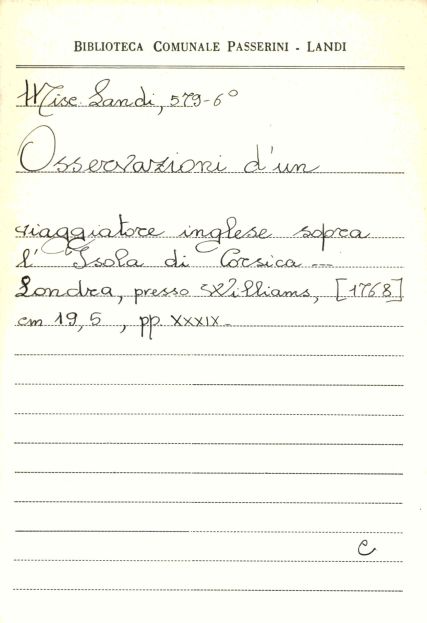 BIBLIOTECA COMUNALE PASSERINI - LANDI
Misc. Landi, 579-6°
Osservazioni d'un
viaggiatore inglese sopra
l'Isola di Corsica ...
Londra, presso Williams, [1768]
cm 19,5 , pp. XXXIX.
C